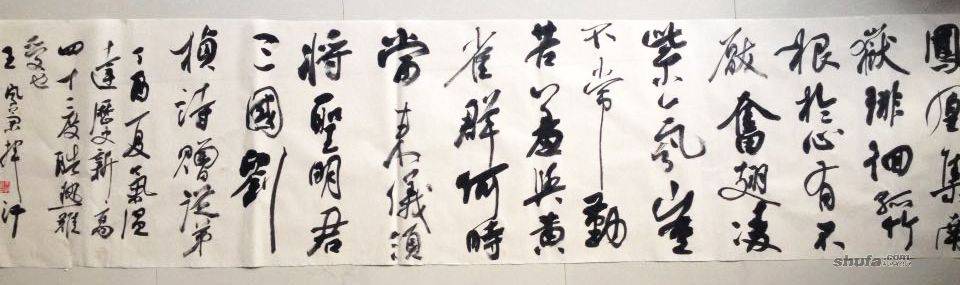 鳳凰集南
嶽徘徊孤竹
根於心有不
厭奮翅凌
紫氛豈
不常勤
苦羞與黄
雀群何時
當来儀須
將聖明君
三國劉
楨詩贈從弟
丁酉夏氣温
達歷史新高
四十二度酷熱難
受也
王揮汗
shufa.com